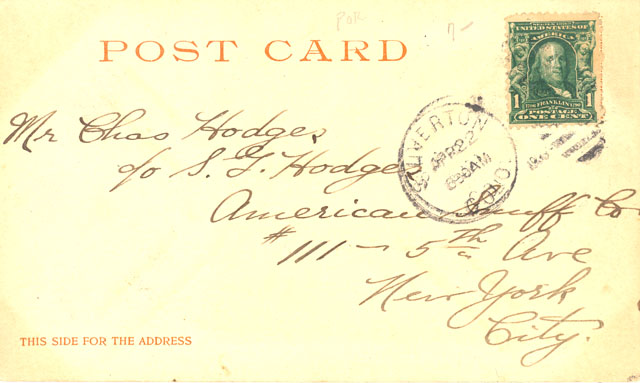 POR
7-
POST CARD
SERIES 1902
UNITED STATES OF AMERICA
1 FRANKLIN 1
POSTAGE
ONE CENT
SILVERTON
APR 22
COLO
AM
Mr Chas Hodges
c/o S. G. Hodges
American Snuff Co
# 111 - 5th Ave
New York
City.
THIS SIDE FOR THE ADDRESS